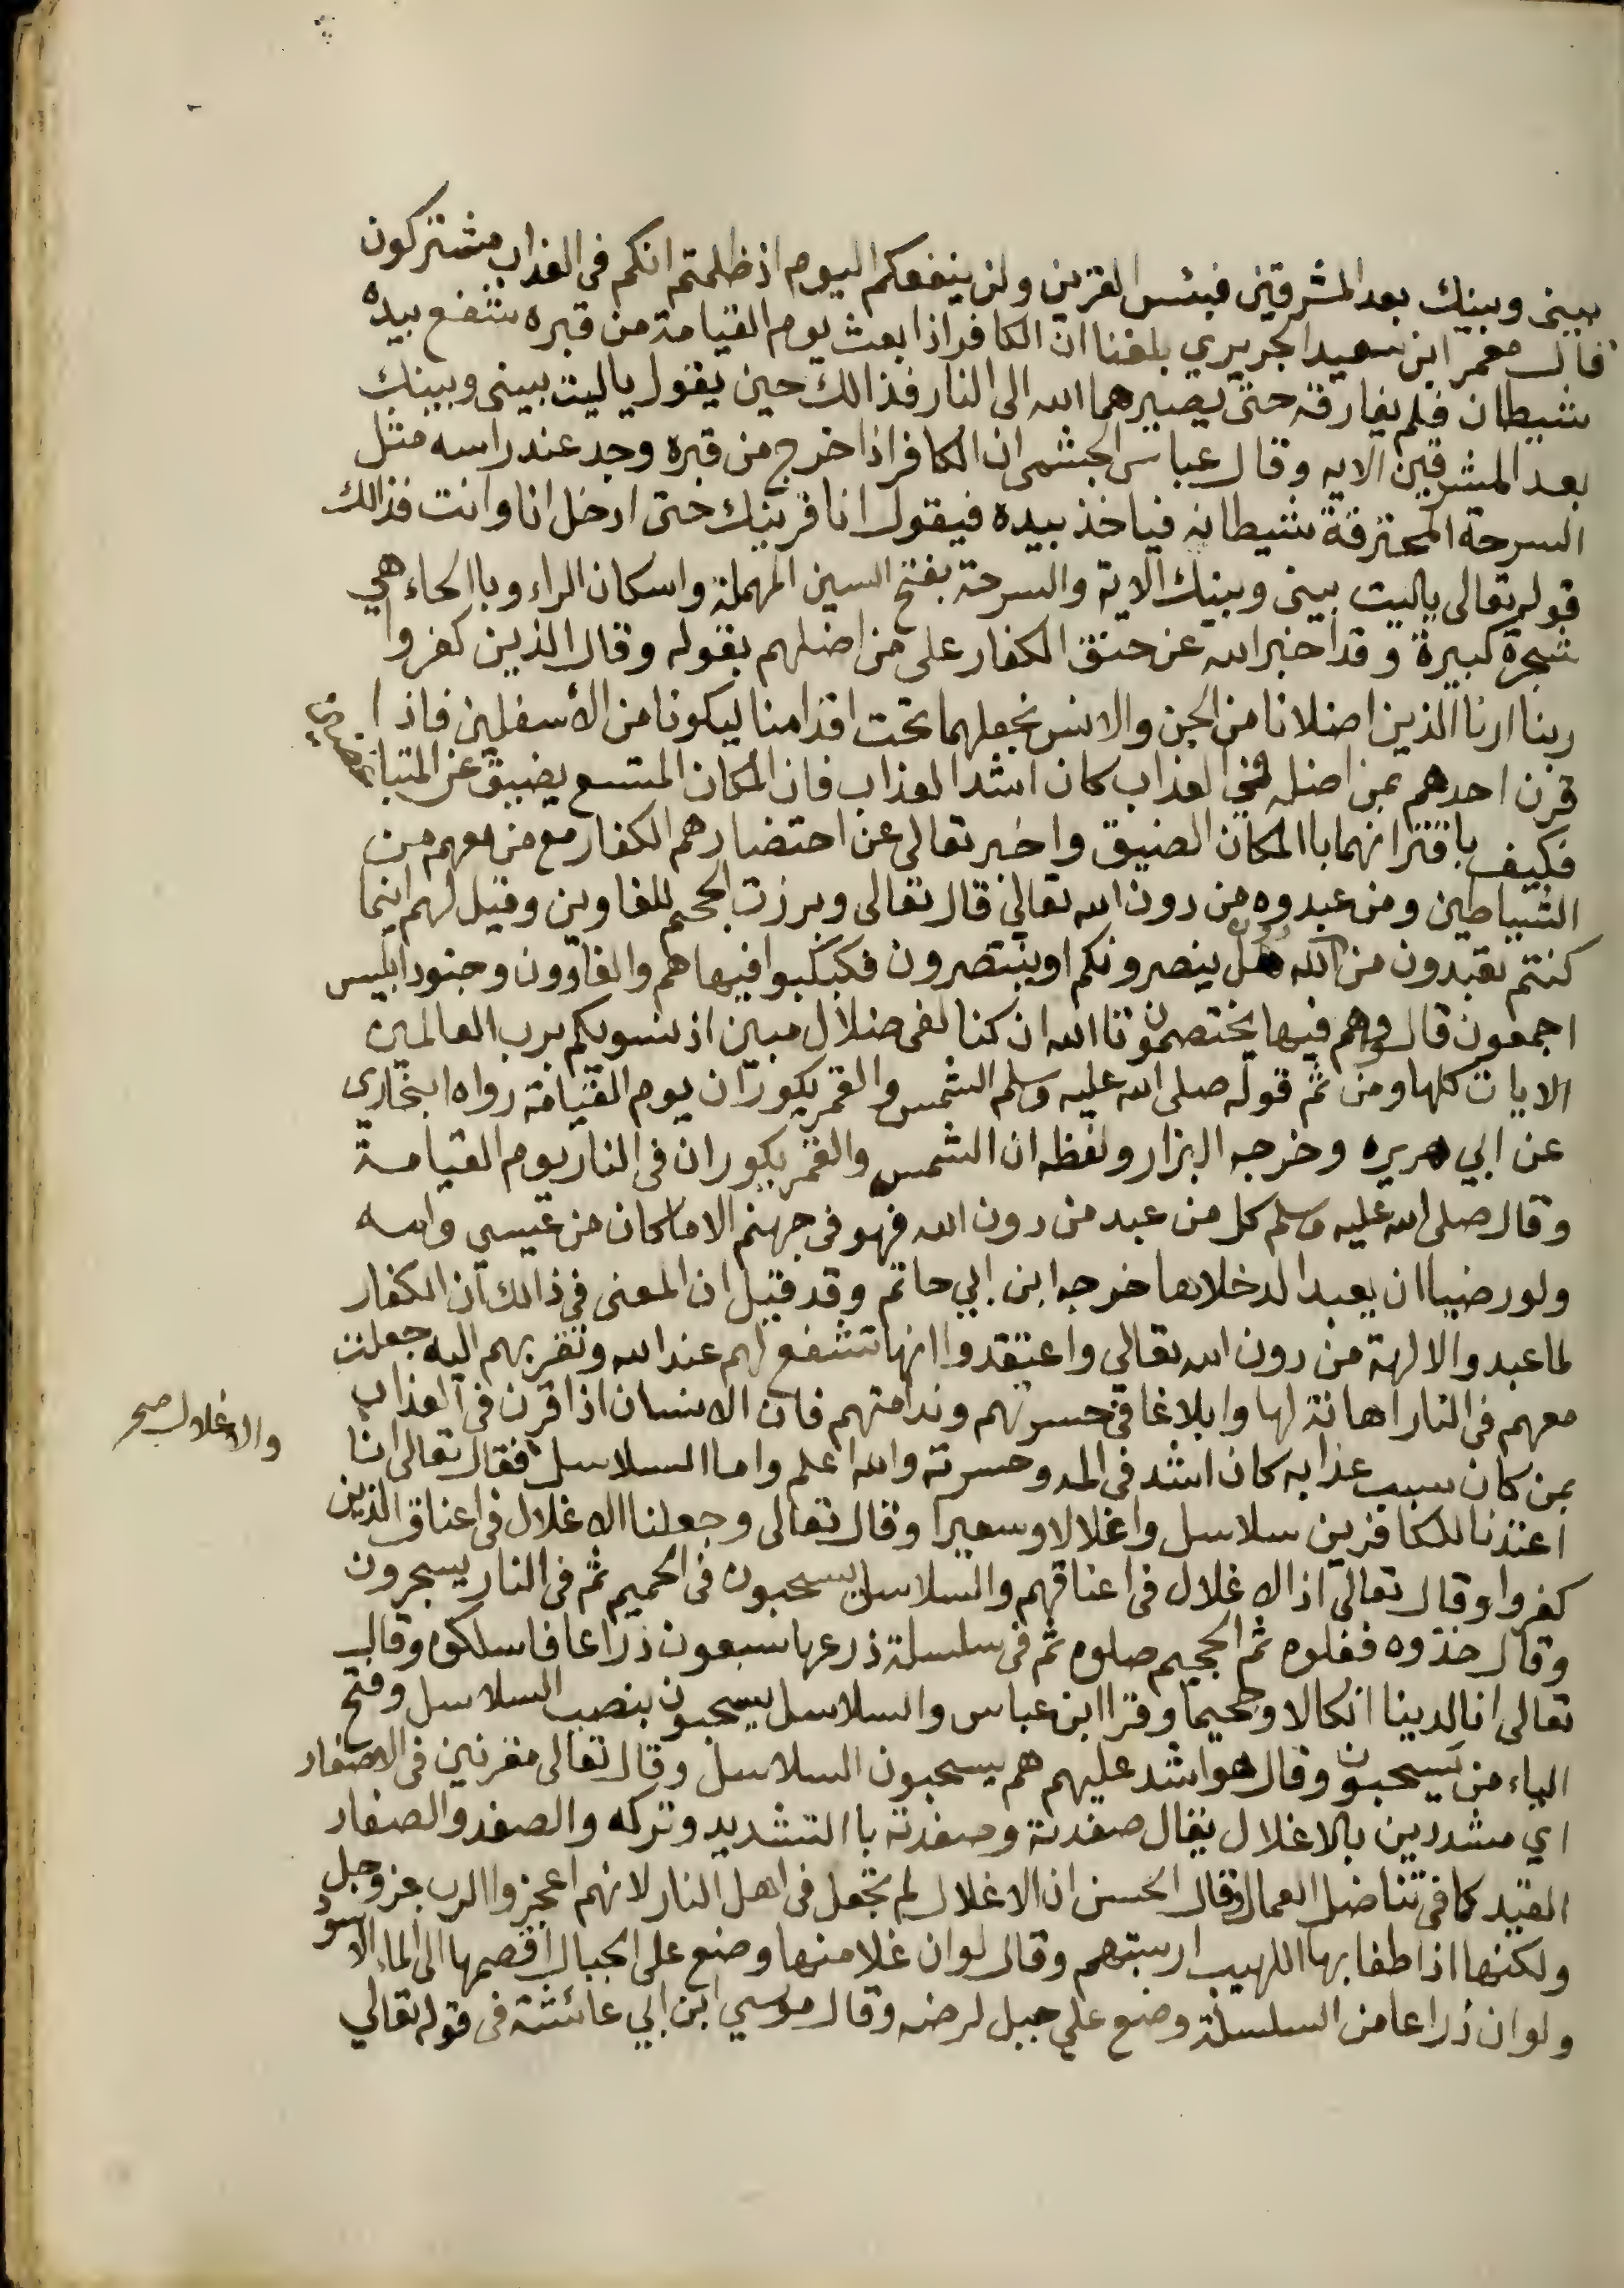 بينى وبينك بعد المشرقين فبئس القرين ولن ينفعكم اليوم اذ ظلمتم انكم فى العذاب مشتركون
قال معمر ابن سعيد الجريري بلغنا ان الكافر اذا بعث يوم القيامة من قبره شفع بيده
شيطان فلم يفارقه حتى يصيرهما الله الى النار فذالك حين يقول ياليت بينى وبينك
بعد المشرقين الايه وقال عباس الجشمى ان الكافر اذا خرج من قبره وجد عند راسه مثل
السرحة المحترقة شيطانه فياخذ بيده فيقول انا قرينك حتى ادخل انا وانت فذالك
قوله تعالى ياليت بينى وبينك الاية والسرحة بفتح السين المهملة واسكان الراء وباالحاء هي
شجرة كبيرة وقد اخبر الله عن حنق الكفار على من اضلهم بقوله وقال الذين كفروا
ربنا ارنا الذين اضلانا من الجن والانس نجعلهما تحت اقدامنا ليكونا من الأسفلين فاذا
قرن احدهم بمن اضله فى العذاب كان اشد العذاب فان المكان المتسع يضيق عن المتباغضين
فكيف باقترانهما باالمكان الضيق واخبر تعالى عن احتضارهم الكفار مع من معهم من
الشياطين ومن عبدوه من دون الله تعالى قال تعالى وبرزت الجحيم للغاوين وقيل لهم اينما
كنتم تعبدون من دون الله هل ينصرونكم او ينتصرون فكبكبوا فيها هم والغاوون وجنود ابليس
اجمعون قالوا وهم فيها يختصمون تاالله ان كنا لفى ضلال مبين اذ نسويكم برب العالمين
الايات كلها ومن ثم قوله صلى الله عليه وسلم الشمس والقمر يكوران يوم القيامة رواه البخارى
عن ابي هريره وخرجه البزار ولفظه ان الشمس والقمر يكوران فى النار يوم القيامة
وقال صلى الله عليه وسلم كل من عبد من دون الله فهو فى جهنم الا ما كان من عيسي وامه
ولو رضيا ان يعبدا لدخلاها خرجه ابن ابي حاتم وقد قيل ان المعنى في ذالك ان الكفار
لما عبدوا الالهة من دون الله تعالى واعتقدوا انها تشفع لهم عند الله وتقربهم اليه جعلت
معهم فى النار اهانة لها وابلاغا في حسرتهم وندامتهم فان الانسان اذا قرن فى العذاب
بمن كان سبب عذابه كان اشد فى المه وحسرته والله اعلم واما السلاسل فقال تعالى انا
والاغلال صح
اعتدنا للكافرين سلاسل واغلالا وسعيرا وقال تعالى وجعلنا الاغلال فى اعناق الذين
كفروا وقال تعالى اذ الاغلال فى اعناقهم والسلاسل يسحبون فى الحميم ثم فى النار يسجرون
وقال خذوه فغلوه ثم الجحيم صلوه ثم فى سلسلة ذرعها سبعون ذراعا فاسلكوه وقال
تعالى ان لدينا انكالا وجحيما وقرا ابن عباس والسلاسل يسحبون بنصب السلاسل وفتح
الياء من يسحبون وقال هو اشد عليهم هم يسحبون السلاسل وقال تعالى مقرنين فى الاصفاد
اي مشددين بالاغلال يقال صفدته وصفدته باالتشديد وتركه والصفد والصفاد
القيد كما فى تناضل العمال وقال الحسن ان الاغلال لم تجعل فى اهل النار لانهم اعجزوا الرب عز وجل
ولكنها اذا طفا بها اللهيب ارستهم وقال لو ان غلا منها وضع على الجبال لقصمها الى الماء الاسود
ولو ان ذراعا من السلسلة وضع على جبل لرضه وقال موسي ابن ابي عائشة فى قوله تعالي